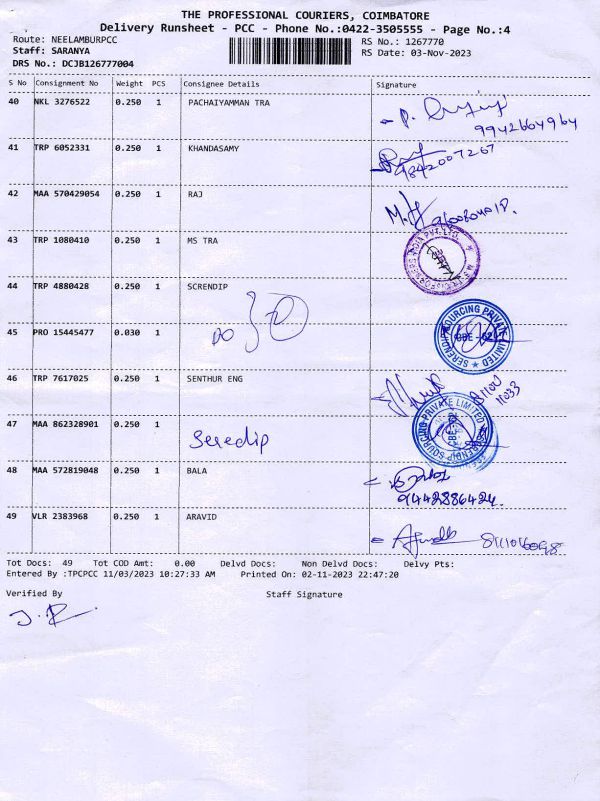 THE PROFESSIONAL COURIERS, COIMBATORE
Delivery Runsheet - PCC - Phone No.:0422-3505555 - Page No.:4
Route: NEELAMBURPCC RS No.: 1267770
Staff: SARANYA RS Date: 03-Nov-2023
DRS No.: DCJB126777004
S No Consignment No Weight PCS Consignee Details Signature
40 NKL 3276522 0.250 1 PACHAIYAMMAN TRA
9942604964
41 TRP 6052331 0.250 1 KHANDASAMY
9842007267
42 MAA 570429054 0.250 1 RAJ
43 TRP 1080410 0.250 1 MS TRA
44 TRP 4880428 0.250 1 SCRENDIP
DO
45 PRO 15445477 0.030 1
SERENDIP SOURCING PRIVATE LIMITED
46 TRP 7617025 0.250 1 SENTHUR ENG
47 MAA 862328901 0.250 1 Seredip
SERENDIP SOURCING PRIVATE LIMITED
48 MAA 572819048 0.250 1 BALA
9442886424
49 VLR 2383968 0.250 1 ARAVID
Tot Docs: 49 Tot COD Amt: 0.00 Delvd Docs: Non Delvd Docs: Delvy Pts:
Entered By :TPCPCC 11/03/2023 10:27:33 AM Printed On: 02-11-2023 22:47:20
Verified By Staff Signature